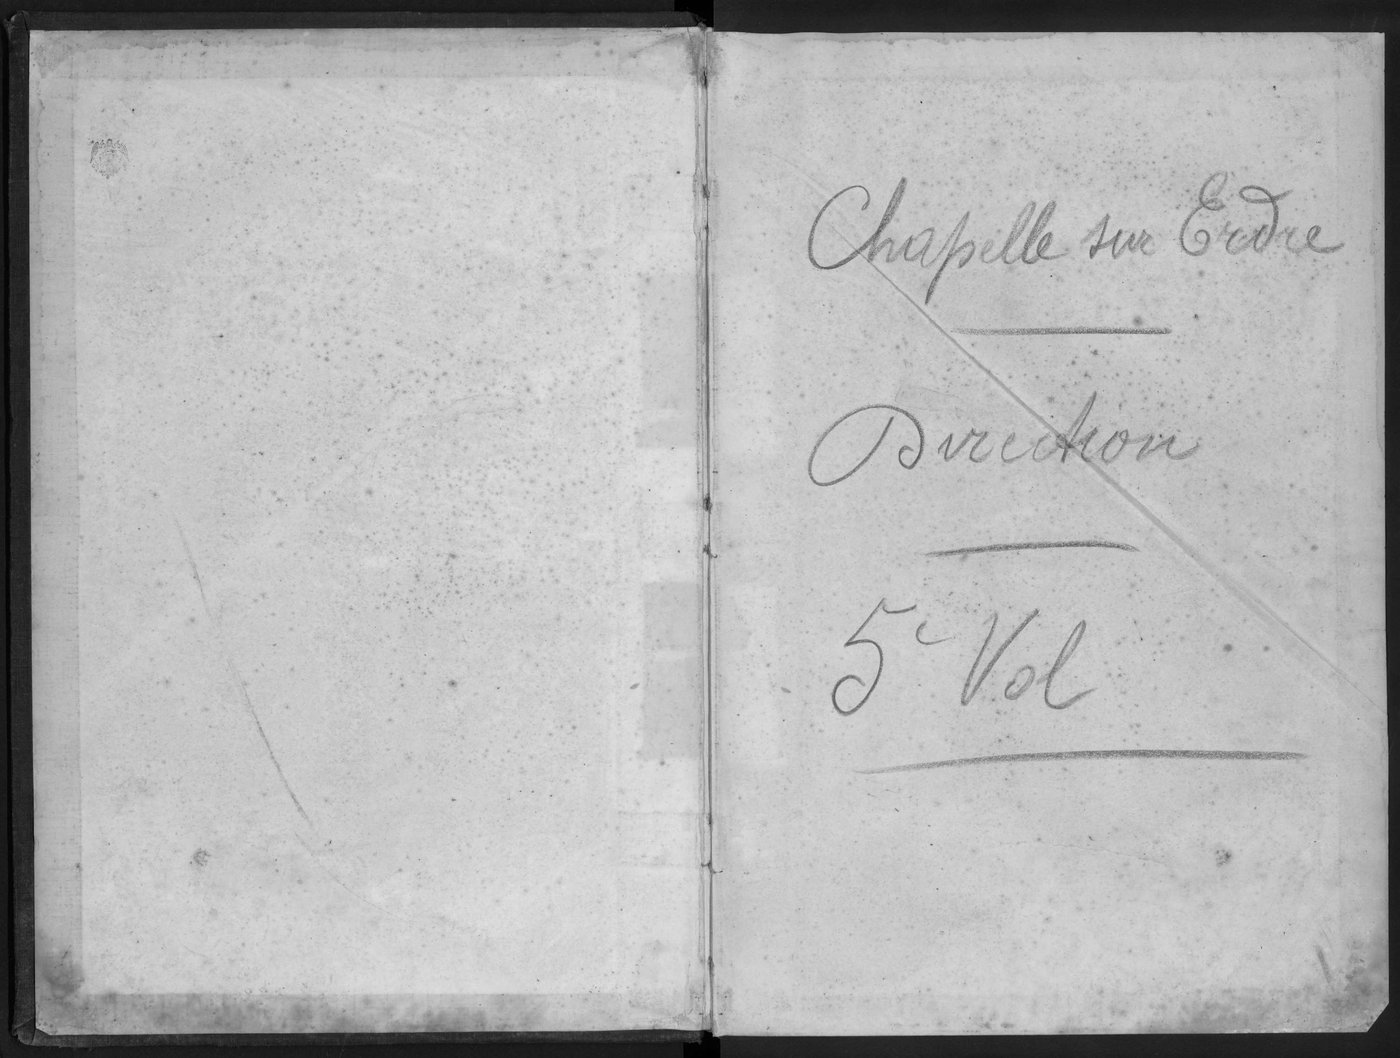 Chapelle sur Erdre
Direction
5e Vol